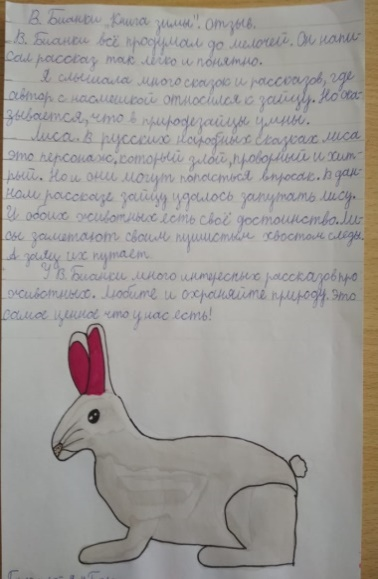 В. Бианки "Книга зимы". Отзыв.
В. Бианки всё продумал до мелочей. Он напи-
сал рассказ так легко и понятно.
Я слышала много сказок и рассказов, где
автор с насмешкой относился к зайцу. Но ока-
зывается, что в природе зайцы умны.
Лиса. В русских народных сказках лиса
это персонаж, который злой, проворный и хит-
рый. Но и они могут попасться впросак. В дан-
ном рассказе зайцу удалось запутать лису.
И обоих животных есть своё достоинства. Ли-
сы заметают своим пушистым хвостом следы.
А заяц их путает.
У В. Бианки много интересных рассказов про
животных. Любите и охраняйте природу. Это
самое ценное что у нас есть!